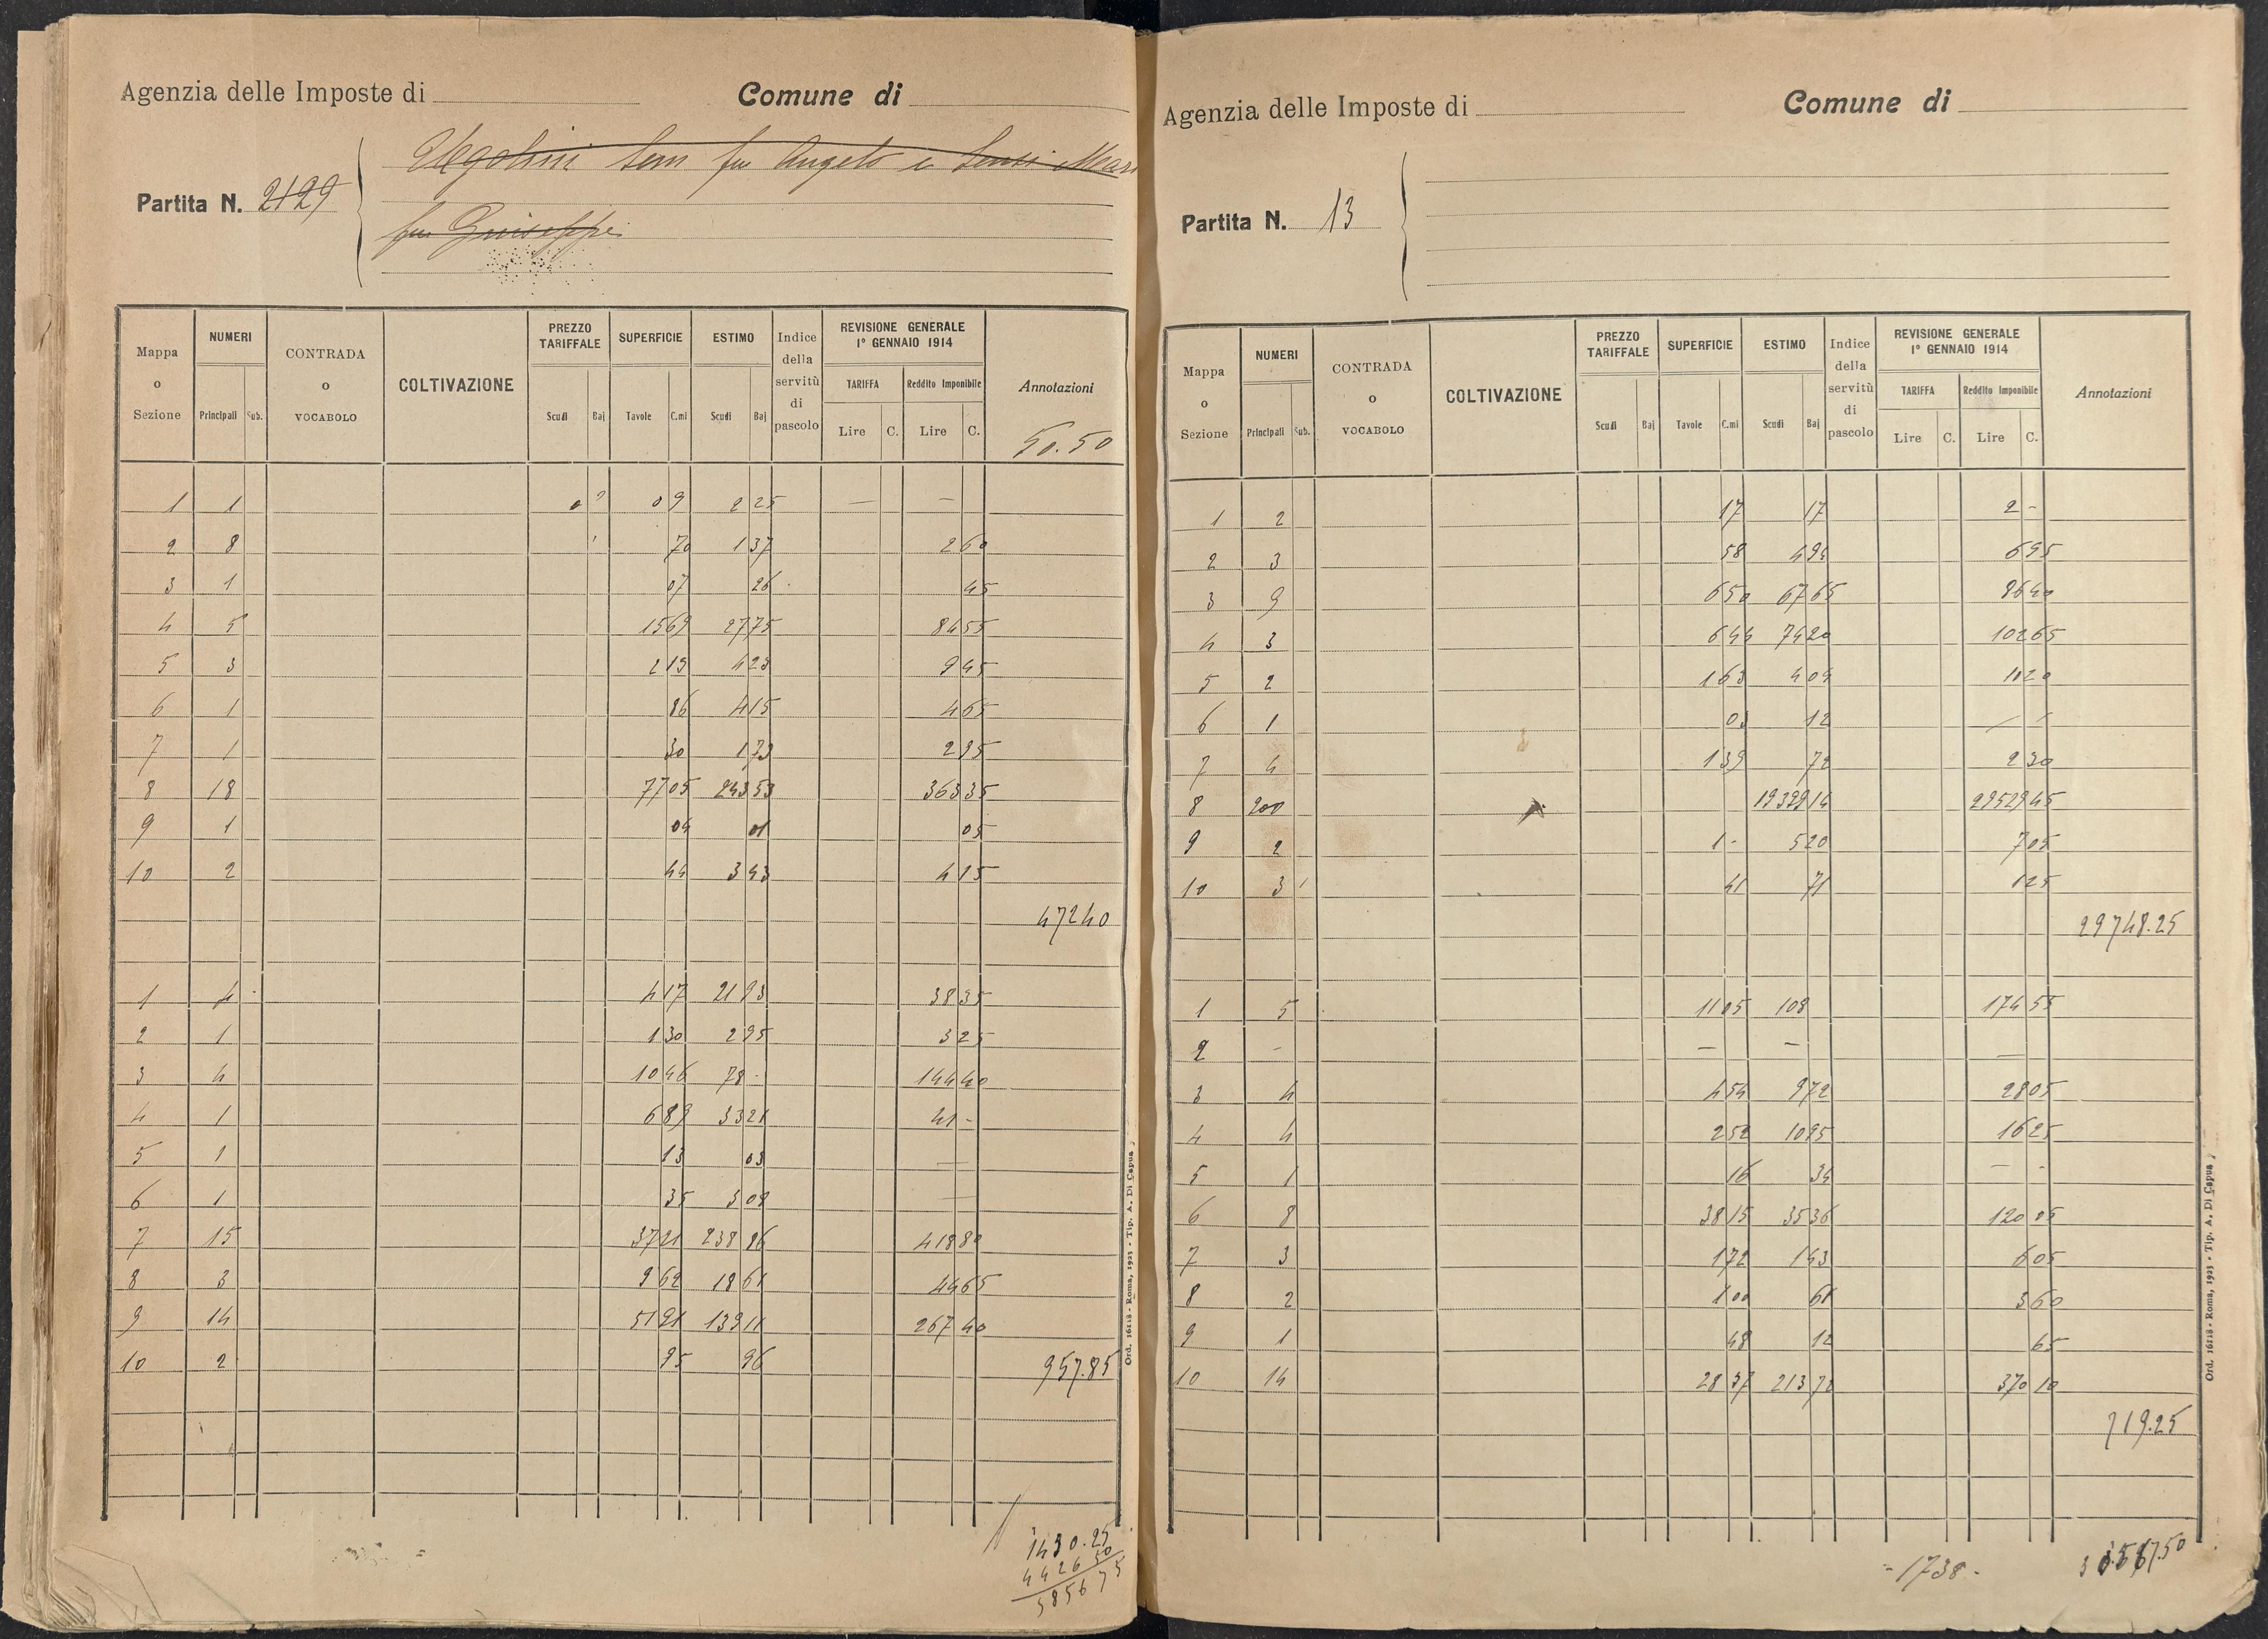 Agenzia delle Imposte di
Comune di
Ugolini
fu Angelo e
Partita N. 2129
fu Giuseppe
Mappa o Sezione
NUMERI
Principali
Sub.
CONTRADA o VOCABOLO
COLTIVAZIONE
PREZZO TARIFFALE
Scudi
Baj
SUPERFICIE
Tavole
C.mi
ESTIMO
Scudi
Baj
Indice della servitù di pascolo
REVISIONE GENERALE 1° GENNAIO 1914
TARIFFA
Lire
C.
Reddito Imponibile
Lire
C.
Annotazioni
50.50
1 1 09 2 25 — —
2 8 70 1 37 2 60
3 1 07 26 45
4 5 15 69 27 75 84 55
5 3 2 19 4 23 9 45
6 1 86 4 15 4 65
7 1 30 1 73 2 95
8 18 77 05 243 53 363 35
9 1 04 01 05
10 2 44 3 43 4 15
472 40
1 4 4 17 21 93 38 35
2 1 1 30 2 95 3 25
3 4 10 46 78 - 144 40
4 1 6 89 33 21 41 -
5 1 13 03 —
6 1 35 3 08 —
7 15 37 21 238 86 418 80
8 3 9 62 18 61 44 65
9 14 51 91 139 11 267 40
10 2 95 96
957.85
1430.25
4426 50
5856 75
Ord. 16118 - Roma, 1923 - Tip. A. Di Capua
Agenzia delle Imposte di
Comune di
Partita N. 13
Mappa o Sezione
NUMERI
Principali
Sub.
CONTRADA o VOCABOLO
COLTIVAZIONE
PREZZO TARIFFALE
Scudi
Baj
SUPERFICIE
Tavole
C.mi
ESTIMO
Scudi
Baj
Indice della servitù di pascolo
REVISIONE GENERALE 1° GENNAIO 1914
TARIFFA
Lire
C.
Reddito Imponibile
Lire
C.
Annotazioni
1 2 17 17 2 -
2 3 58 4 94 6 95
3 9 6 50 67 65 86 40
4 3 6 44 74 20 102 65
5 2 1 63 4 04 10 20
6 1 03 12 — —
7 4 1 39 72 2 30
8 200 19399 14 29529 45
9 2 1 - 5 20 7 05
10 3 41 71 1 25
29748.25
1 5 11 05 108 174 55
2 - — — —
3 4 4 54 9 72 28 05
4 4 2 52 10 95 16 25
5 1 16 34 — -
6 8 38 15 35 36 120 05
7 3 1 72 1 43 6 05
8 2 1 00 61 3 60
9 1 48 12 65
10 14 28 37 213 78 370 10
719.25
= 1738 -
Ord. 16118 - Roma, 1923 - Tip. A. Di Capua